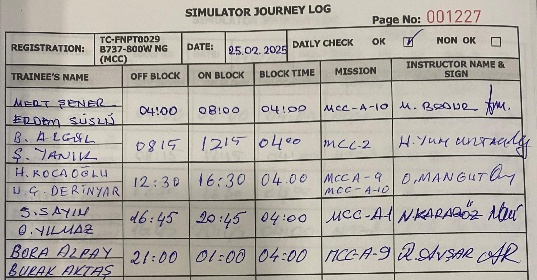 SIMULATOR JOURNEY LOG
Page No: 001227
REGISTRATION: TC-FNPT0029 B737-800W NG (MCC) DATE: 25.02.2025 DAILY CHECK OK NON OK
TRAINEE'S NAME OFF BLOCK ON BLOCK BLOCK TIME MISSION INSTRUCTOR NAME & SIGN
MERT ŞENER
ERDEM SÜSLÜ 04:00 08:00 04:00 MCC-A-10 M.
B. ALGÜL
Ş. YANIK 0815 1215 0400 MCC-2 H.
H. KOCAOĞLU
U.G. DERİNYAR 12:30 16:30 04.00 MCCA-9 MCC-A-10 O. MANGUT
S. SAYIN
O. YILMAZ 16:45 20:45 04:00 MCC-A1 N. KARAGÖZ
BORA ALPAY
BURAK AKTAŞ 21:00 01:00 04:00 MCC-A-9 AVŞAR